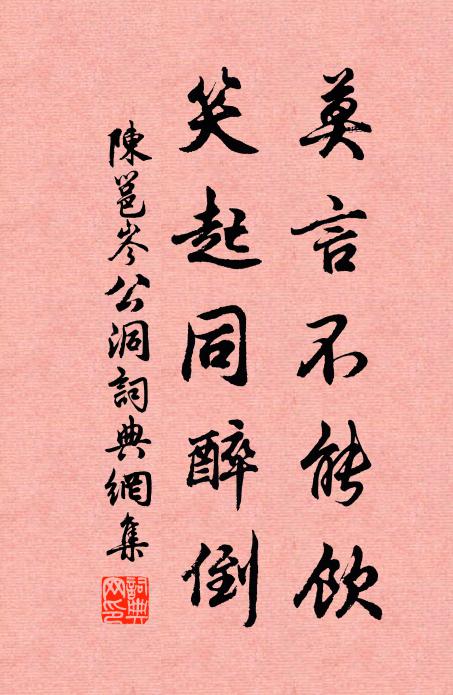 莫言不能飲
笑起同醉倒
陳邕岑公洞詞典網集
詞典网印